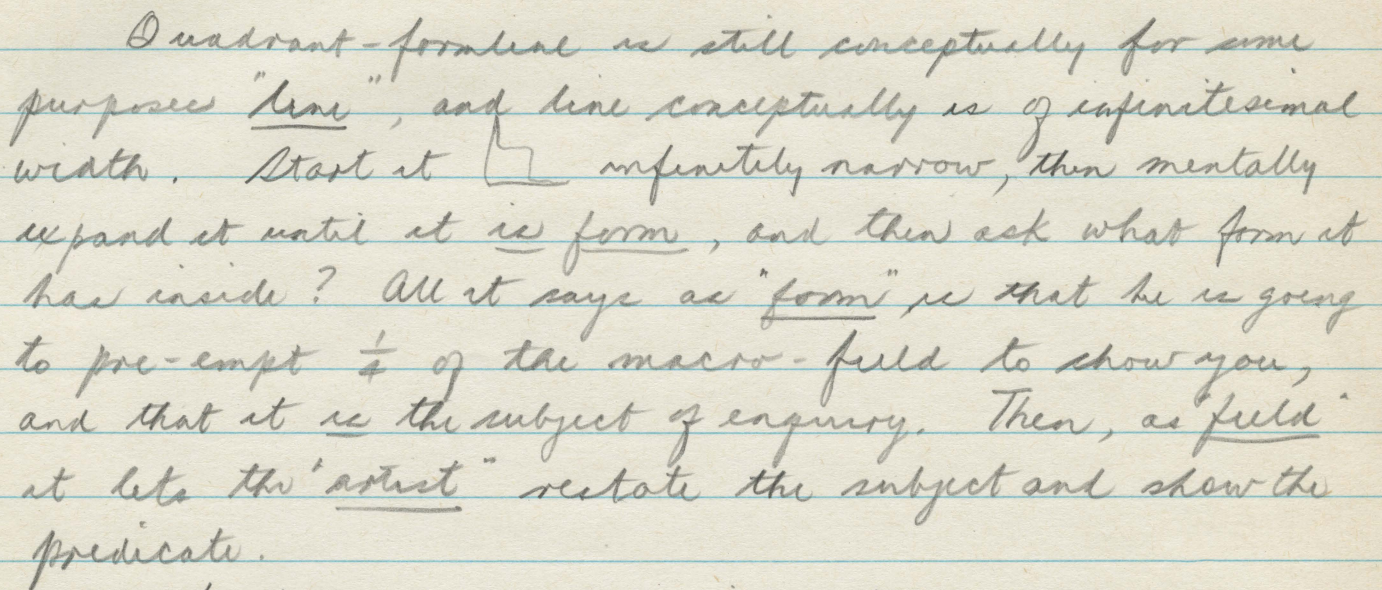 Quadrant-formline is still conceptually for some
purposes "line", and line conceptually is of infinitesimal
width. Start it infinitely narrow, then mentally
expand it until it is form, and then ask what form it
has inside? All it says as "form", is that he is going
to pre-empt 1/4 of the macro-field to show you,
and that it is the subject of enquiry. Then, as "field"
it lets the "artist" restate the subject and show the
predicate.